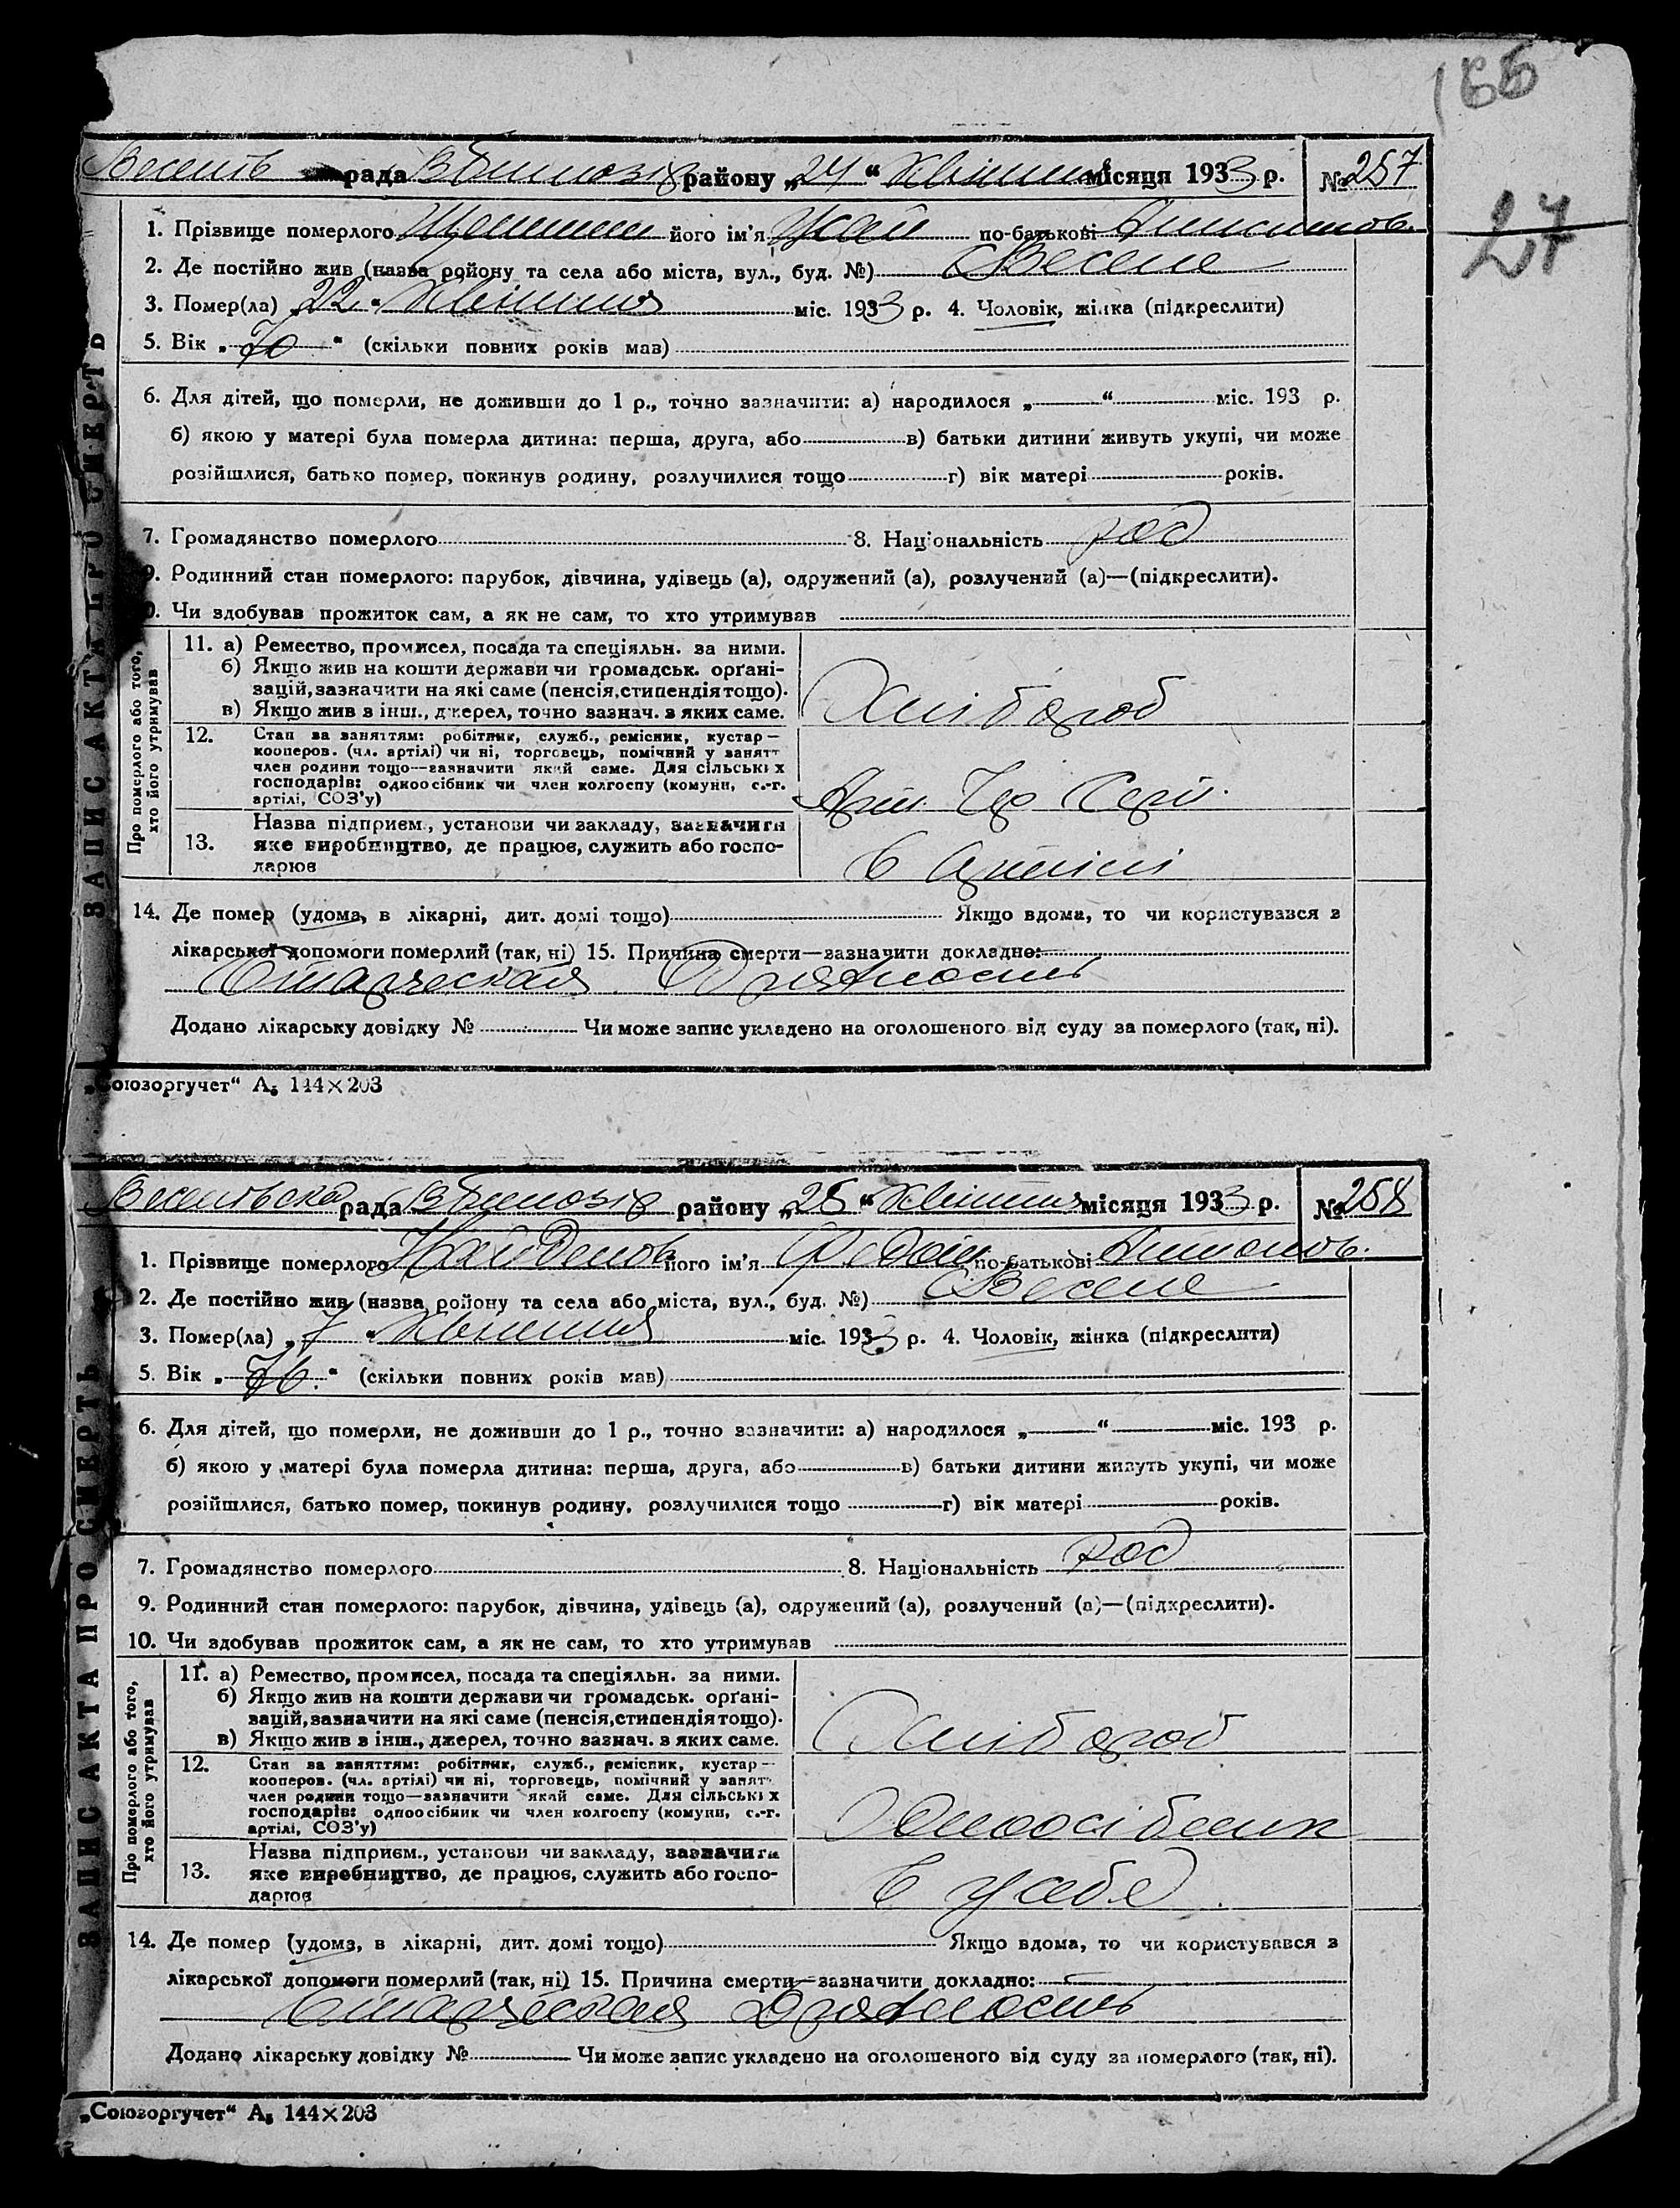 166
27
рада району „24“ Квітня місяця 1933 р. № 257
ЗАПИС АКТА ПРО СМЕРТЬ
1. Прізвище померлого його ім'я по-батькові
2. Де постійно жив (назва району та села або міста, вул., буд. №) с. Веселе
3. Помер(ла) „22“ Квітня міс. 1933 р. 4. Чоловік, жінка (підкреслити)
5. Вік „70“ (скільки повних років мав)
6. Для дітей, що померли, не доживши до 1 р., точно зазначити: а) народилося „ “ міс. 193 р.
б) якою у матері була померла дитина: перша, друга, або в) батьки дитини живуть укупі, чи може
розійшлися, батько помер, покинув родину, розлучилися тощо г) вік матері років.
7. Громадянство померлого 8. Національність рос
9. Родинний стан померлого: парубок, дівчина, удівець (а), одружений (а), розлучений (а)—(підкреслити).
10. Чи здобував прожиток сам, а як не сам, то хто утримував
Про померлого або того, хто його утримував
11. а) Ремество, промисел, посада та спеціяльн. за ними.
б) Якщо жив на кошти держави чи громадськ. орґані-
зацій, зазначити на які саме (пенсія, стипендія тощо).
в) Якщо жив з інш., джерел, точно зазнач. з яких саме.
Хлібороб
12. Стан за заняттям: робітник, служб., ремісник, кустар—
кооперов. (чл. артілі) чи ні, торговець, помічний у занятт
член родини тощо—зазначити який саме. Для сільських
господарів: одноосібник чи член колгоспу (комуни, с.-г.
артілі, СОЗ'у)
13. Назва підприєм., установи чи закладу, зазначити
яке виробництво, де працює, служить або госпо-
дарює
в артілі
14. Де помер (удома, в лікарні, дит. домі тощо) Якщо вдома, то чи користувався з
лікарської допомоги померлий (так, ні) 15. Причина смерти—зазначити докладно:
Старческая Дряхлость
Додано лікарську довідку № Чи може запис укладено на оголошеного від суду за померлого (так, ні).
„Союзоргучет“ А₅ 144×203
Веселовска рада району „25“ Квітня місяця 1933 р. № 258
ЗАПИС АКТА ПРО СМЕРТЬ
1. Прізвище померлого Найденов його ім'я по-батькові Антонов.
2. Де постійно жив (назва району та села або міста, вул., буд. №) с. Веселе
3. Помер(ла) „7“ Квітня міс. 1933 р. 4. Чоловік, жінка (підкреслити)
5. Вік „76“ (скільки повних років мав)
6. Для дітей, що померли, не доживши до 1 р., точно зазначити: а) народилося „ “ міс. 193 р.
б) якою у матері була померла дитина: перша, друга, або в) батьки дитини живуть укупі, чи може
розійшлися, батько помер, покинув родину, розлучилися тощо г) вік матері років.
7. Громадянство померлого 8. Національність рос
9. Родинний стан померлого: парубок, дівчина, удівець (а), одружений (а), розлучений (а)—(підкреслити).
10. Чи здобував прожиток сам, а як не сам, то хто утримував
Про померлого або того, хто його утримував
11. а) Ремество, промисел, посада та спеціяльн. за ними.
б) Якщо жив на кошти держави чи громадськ. орґані-
зацій, зазначити на які саме (пенсія, стипендія тощо).
в) Якщо жив з інш., джерел, точно зазнач. з яких саме.
Хлібороб
12. Стан за заняттям: робітник, служб., ремісник, кустар—
кооперов. (чл. артілі) чи ні, торговець, помічний у занят
член родини тощо—зазначити який саме. Для сільських
господарів: одноосібник чи член колгоспу (комуни, с.-г.
артілі, СОЗ'у)
Одноосібник
13. Назва підприєм., установи чи закладу, зазначити
яке виробництво, де працює, служить або госпо-
дарює
в у себе
14. Де помер (удома, в лікарні, дит. домі тощо) Якщо вдома, то чи користувався з
лікарської допомоги померлий (так, ні) 15. Причина смерти—зазначити докладно:
Старческая Дряхлость
Додано лікарську довідку № Чи може запис укладено на оголошеного від суду за померлого (так, ні).
„Союзоргучет“ А₅ 144×203